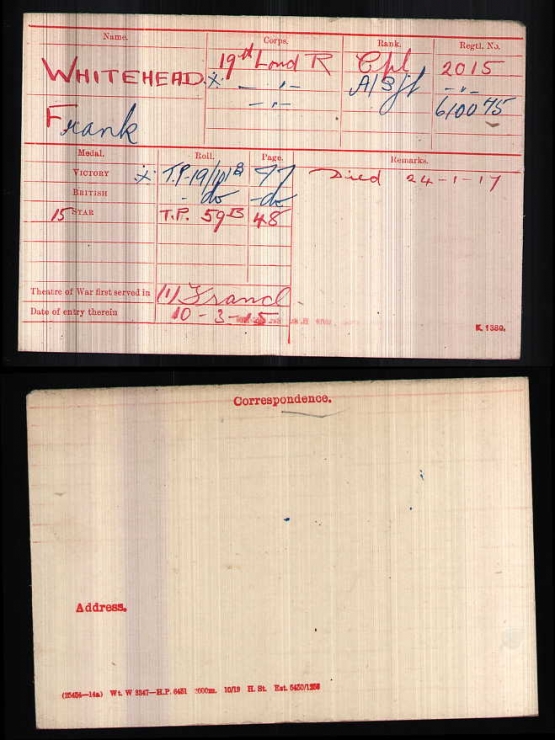 Name. Corps. Rank. Regtl. No.
WHITEHEAD. 19th Lond R Cpl 2015
x — " — A/Sjt — " —
— " — 610075
Frank
Medal. Roll. Page. Remarks.
VICTORY x T.P. 19/101B 77 Died 24-1-17
BRITISH - do -do
15 STAR T.P. 59B 48
Theatre of War first served in (1) France
Date of entry therein 10-3-15
K. 1380.
Correspondence.
Address.
10/19 H. St.